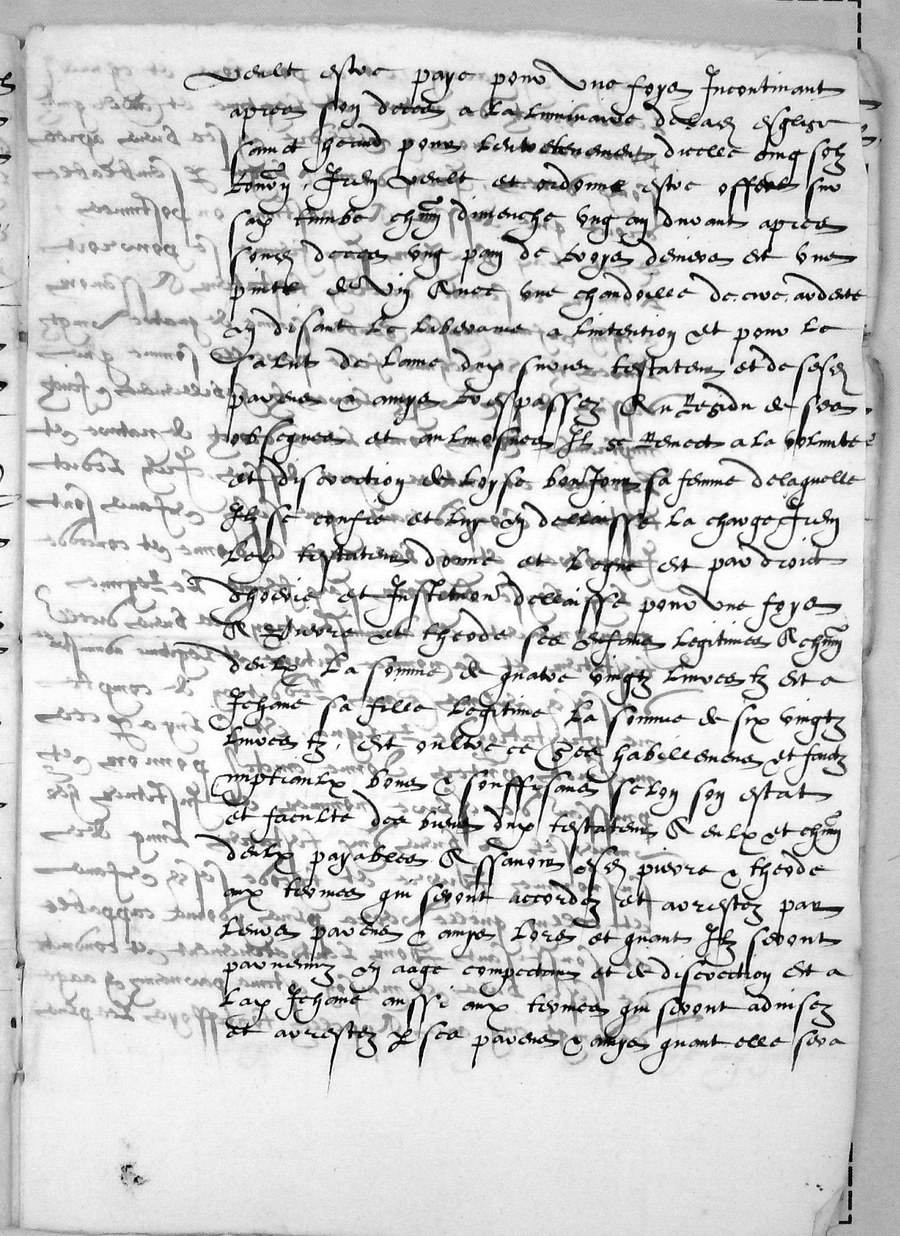 veult estre paye pour une foys Incontinant
apres son deces a la luminaire de lad esglise
sainct heand pour lentretenement dicelle cinq solz
tourn. Item veult et ordonne estre offert sur
sa tumbe chun dimenche ung an durant apres
sond deces ung pain de troys deniers et une
pinte de vin Avec une chandoille de cire ardente
en disant le liberame a lintention et pour le
salut de lame dud testateur et de sesd
parens & amys trespassez Au Residu de ses
obseques et aulmosnes Il se Remect a la volunte
et discrection de loyse sa femme delaquelle
Il se confie et luy en delaisse la charge Item
led testateur donne et legue et par droict
dhoerie et Institution delaisse pour une foys
A pierre et theode ses enfans legitimes A chun
deulx la somme de quatre vingtz livres tz et a
Jehane sa fille legitime la somme de six vingtz
livres tz. Et oultre ce ses habillemens et fardz
nuptiaulx bons & souffisans selon son estat
et faculte des biens dud testateur A eulx et chun
deulx payables Assavoir esd pierre & theode
aux termes qui seront accordez et arrestez par
leurs parens & amys lors et quant Ilz seront
parvenuz en aage competant et de discrection et a
lad Jehane aussi aux termes qui seront advisez
et arrestez p ses parens & amys quant elle sera